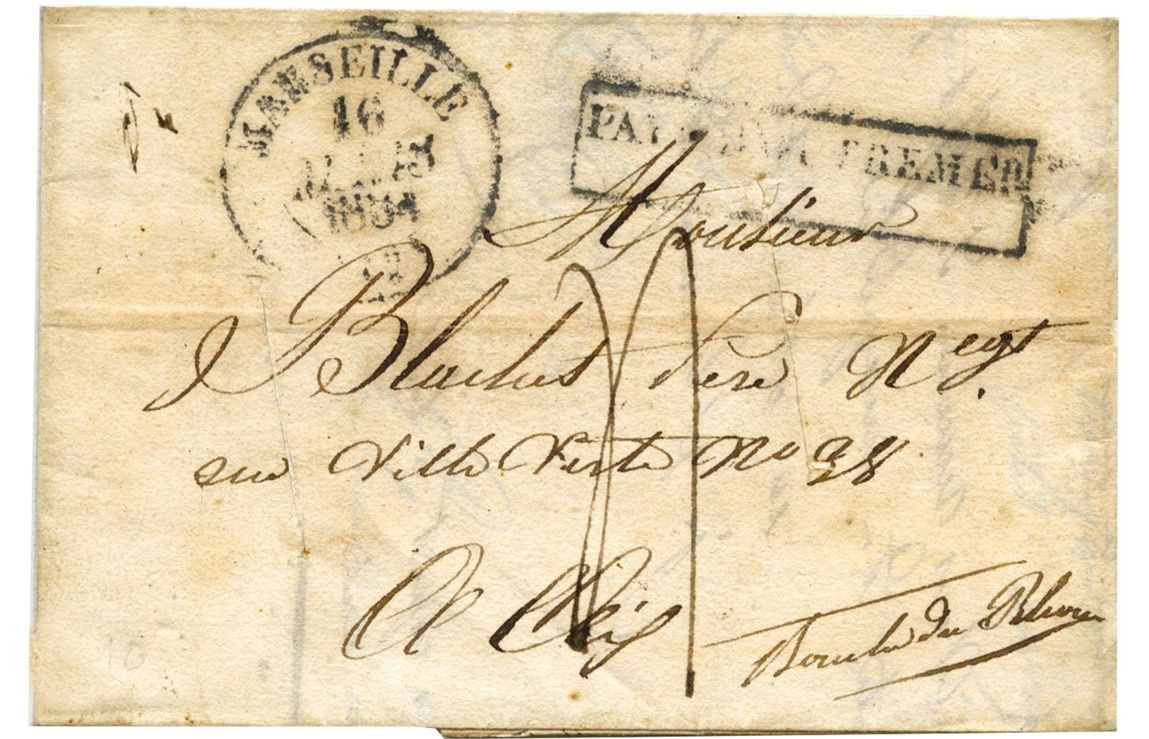 MARSEILLE
16
MARS
1834
(12)
PAYS D'OUTREMER
Monsieur
Père Negt.
rue Ville Verte No 38
A Aix
Bouche du Rhone